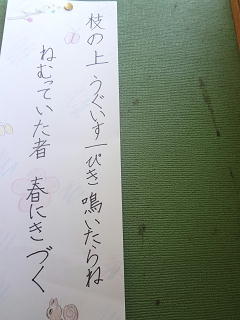 枝の上 うぐいす一ぴき 鳴いたらね
ねむっていた者 春にきづく